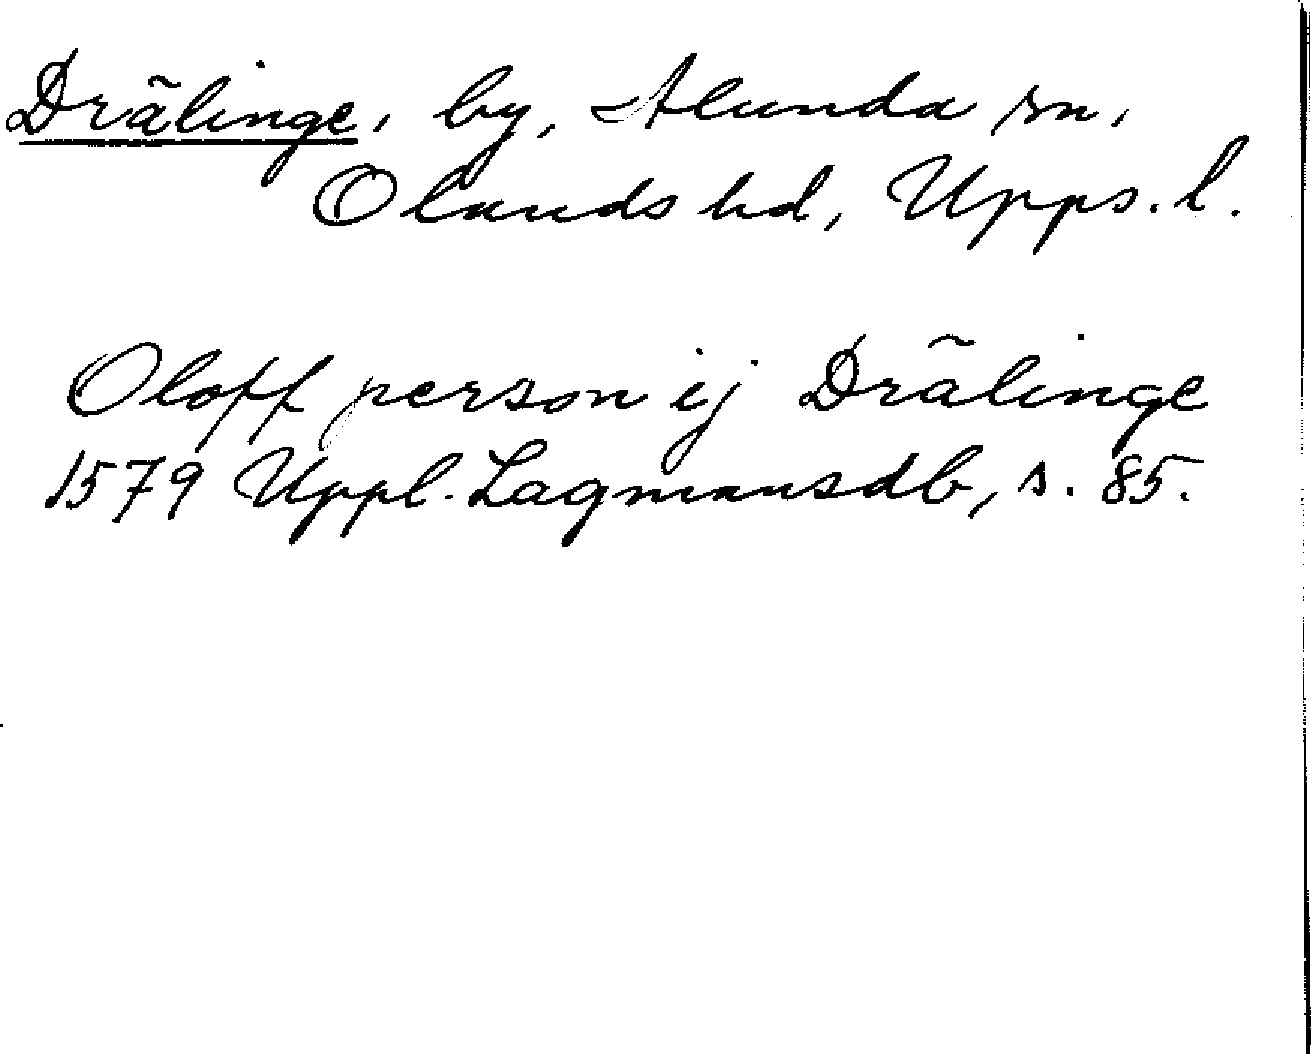 Drälinge, by, Alunda sn,
Olands hd, Upps. l.
Oloff person ij Drälinge
1579 Uppl. Lagmansdb, s. 85.